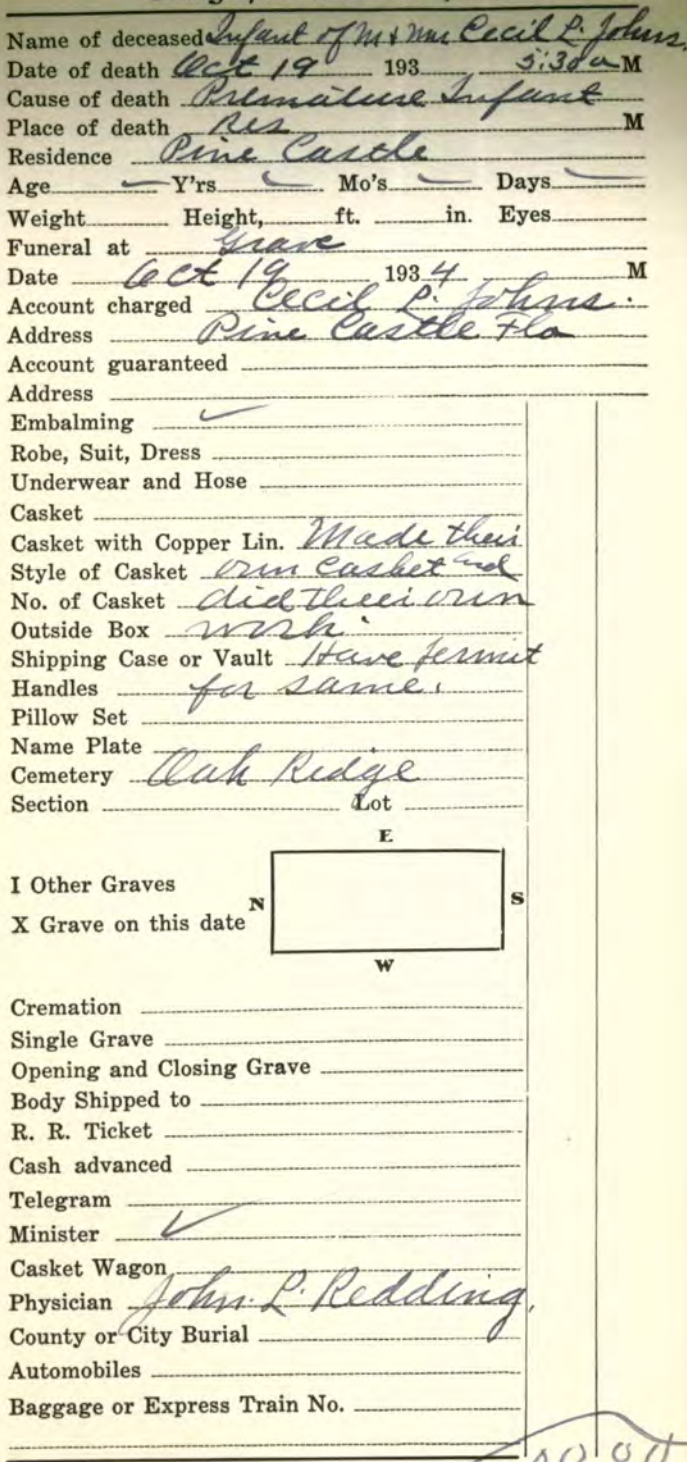 Name of deceased Infant of Mr & Mrs Cecil L. Johns.
Date of death Oct 19 193 5:30 a M
Cause of death Premature Infant
Place of death Res M
Residence Pine Castle
Age Y'rs Mo's Days
Weight Height, ft. in. Eyes
Funeral at Grave
Date Oct 19 1934 M
Account charged Cecil L. Johns.
Address Pine Castle Fla
Account guaranteed
Address
Embalming ✓
Robe, Suit, Dress
Underwear and Hose
Casket
Casket with Copper Lin. Made their
Style of Casket own casket and
No. of Casket did their own
Outside Box work.
Shipping Case or Vault Have permit
Handles for same.
Pillow Set
Name Plate
Cemetery Oak Ridge
Section Lot
E
I Other Graves
N S
X Grave on this date
W
Cremation
Single Grave
Opening and Closing Grave
Body Shipped to
R. R. Ticket
Cash advanced
Telegram
Minister ✓
Casket Wagon
Physician John. L. Redding.
County or City Burial
Automobiles
Baggage or Express Train No.